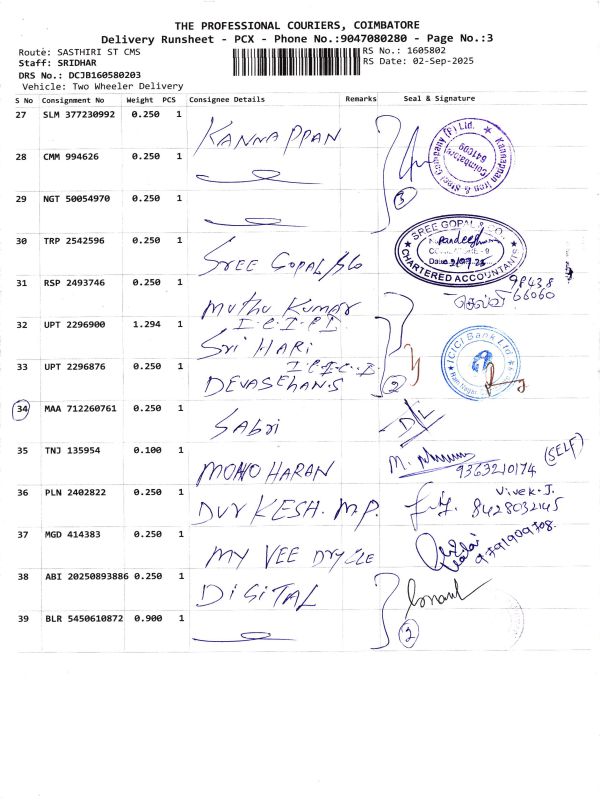 THE PROFESSIONAL COURIERS, COIMBATORE
Delivery Runsheet - PCX - Phone No.:9047080280 - Page No.:3
Route: SASTHIRI ST CMS
RS No.: 1605802
Staff: SRIDHAR
RS Date: 02-Sep-2025
DRS No.: DCJB160580203
Vehicle: Two Wheeler Delivery
S No Consignment No Weight PCS Consignee Details Remarks Seal & Signature
27 SLM 377230992 0.250 1 KANNAPPAN
Kannappan Iron & Steel Company (P) Ltd. Coimbatore 641009
28 CMM 994626 0.250 1
29 NGT 50054970 0.250 1
3
30 TRP 2542596 0.250 1 SREE GOPAL &Co
SREE GOPAL & CO. CHARTERED ACCOUNTANTS
31 RSP 2493746 0.250 1 Muthu Kumar
I.C.I.C.I
செல்வி 98438 66060
32 UPT 2296900 1.294 1 Sri HARI
I.C.I.C.I
ICICI Bank Ltd
33 UPT 2296876 0.250 1 DEVASEHAN.S
2
34 MAA 712260761 0.250 1 SAbri D/L
35 TNJ 135954 0.100 1 MONO HARAN
9363210174 (SELF)
36 PLN 2402822 0.250 1 DURKESH. M.P.
Vivek.J.
8428032145
37 MGD 414383 0.250 1 MY VEE DRYCLE
9791909708.
38 ABI 20250893886 0.250 1 DIGITAL
39 BLR 5450610872 0.900 1
2